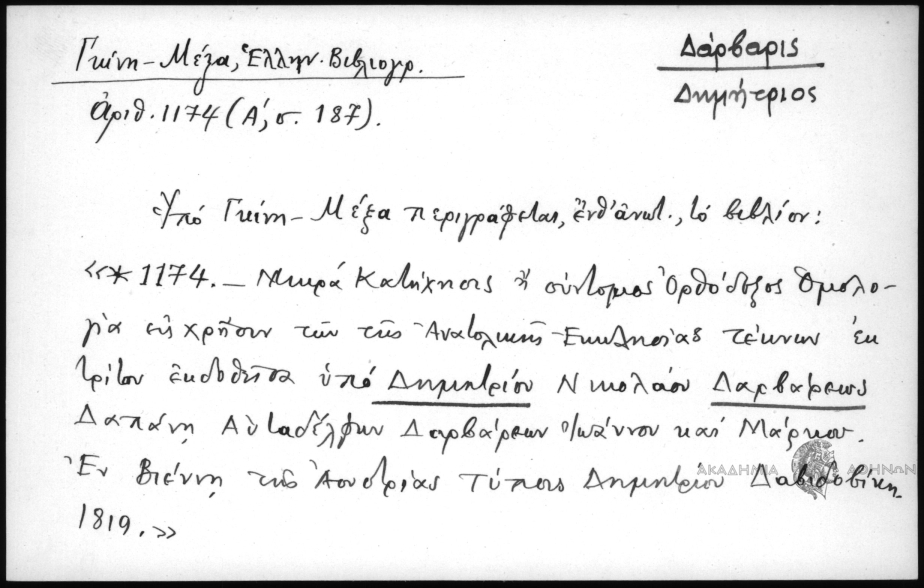 Γκίνη-Μέξα, Ἑλλην. Βιβλιογρ.
ἀριθ. 1174 (Α΄, σ. 187).
Δάρβαρις
Δημήτριος
Ὑπό Γκίνη-Μέξα περιγράφεται, ἔνθ' ἀνωτ., τό βιβλίον:
«*1174.— Μικρά Κατήχησις ἤ σύντομος Ὀρθόδοξος Ὁμολο-
γία εἰς χρῆσιν τῶν τῆς Ἀνατολικῆς Ἐκκλησίας τέκνων ἐκ
τρίτου ἐκδοθεῖσα ὑπό Δημητρίου Νικολάου Δαρβάρεως
Δαπάνῃ Αὐταδέλφων Δαρβάρεων Ἰωάννου καί Μάρκου.
Ἐν Βιέννῃ τῆς Ἀουστρίας Τύποις Δημητρίου Δαβιδοβίκη
1819.»
ΑΚΑΔΗΜΙΑ ΑΘΗΝΩΝ